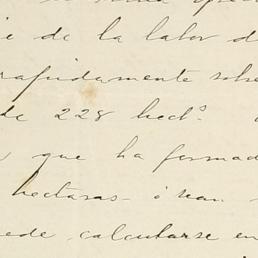 i de la labor d
rapidamente sobre
de 228 hect.s
que ha formad
hectaras - ó sean
ede calcularse en